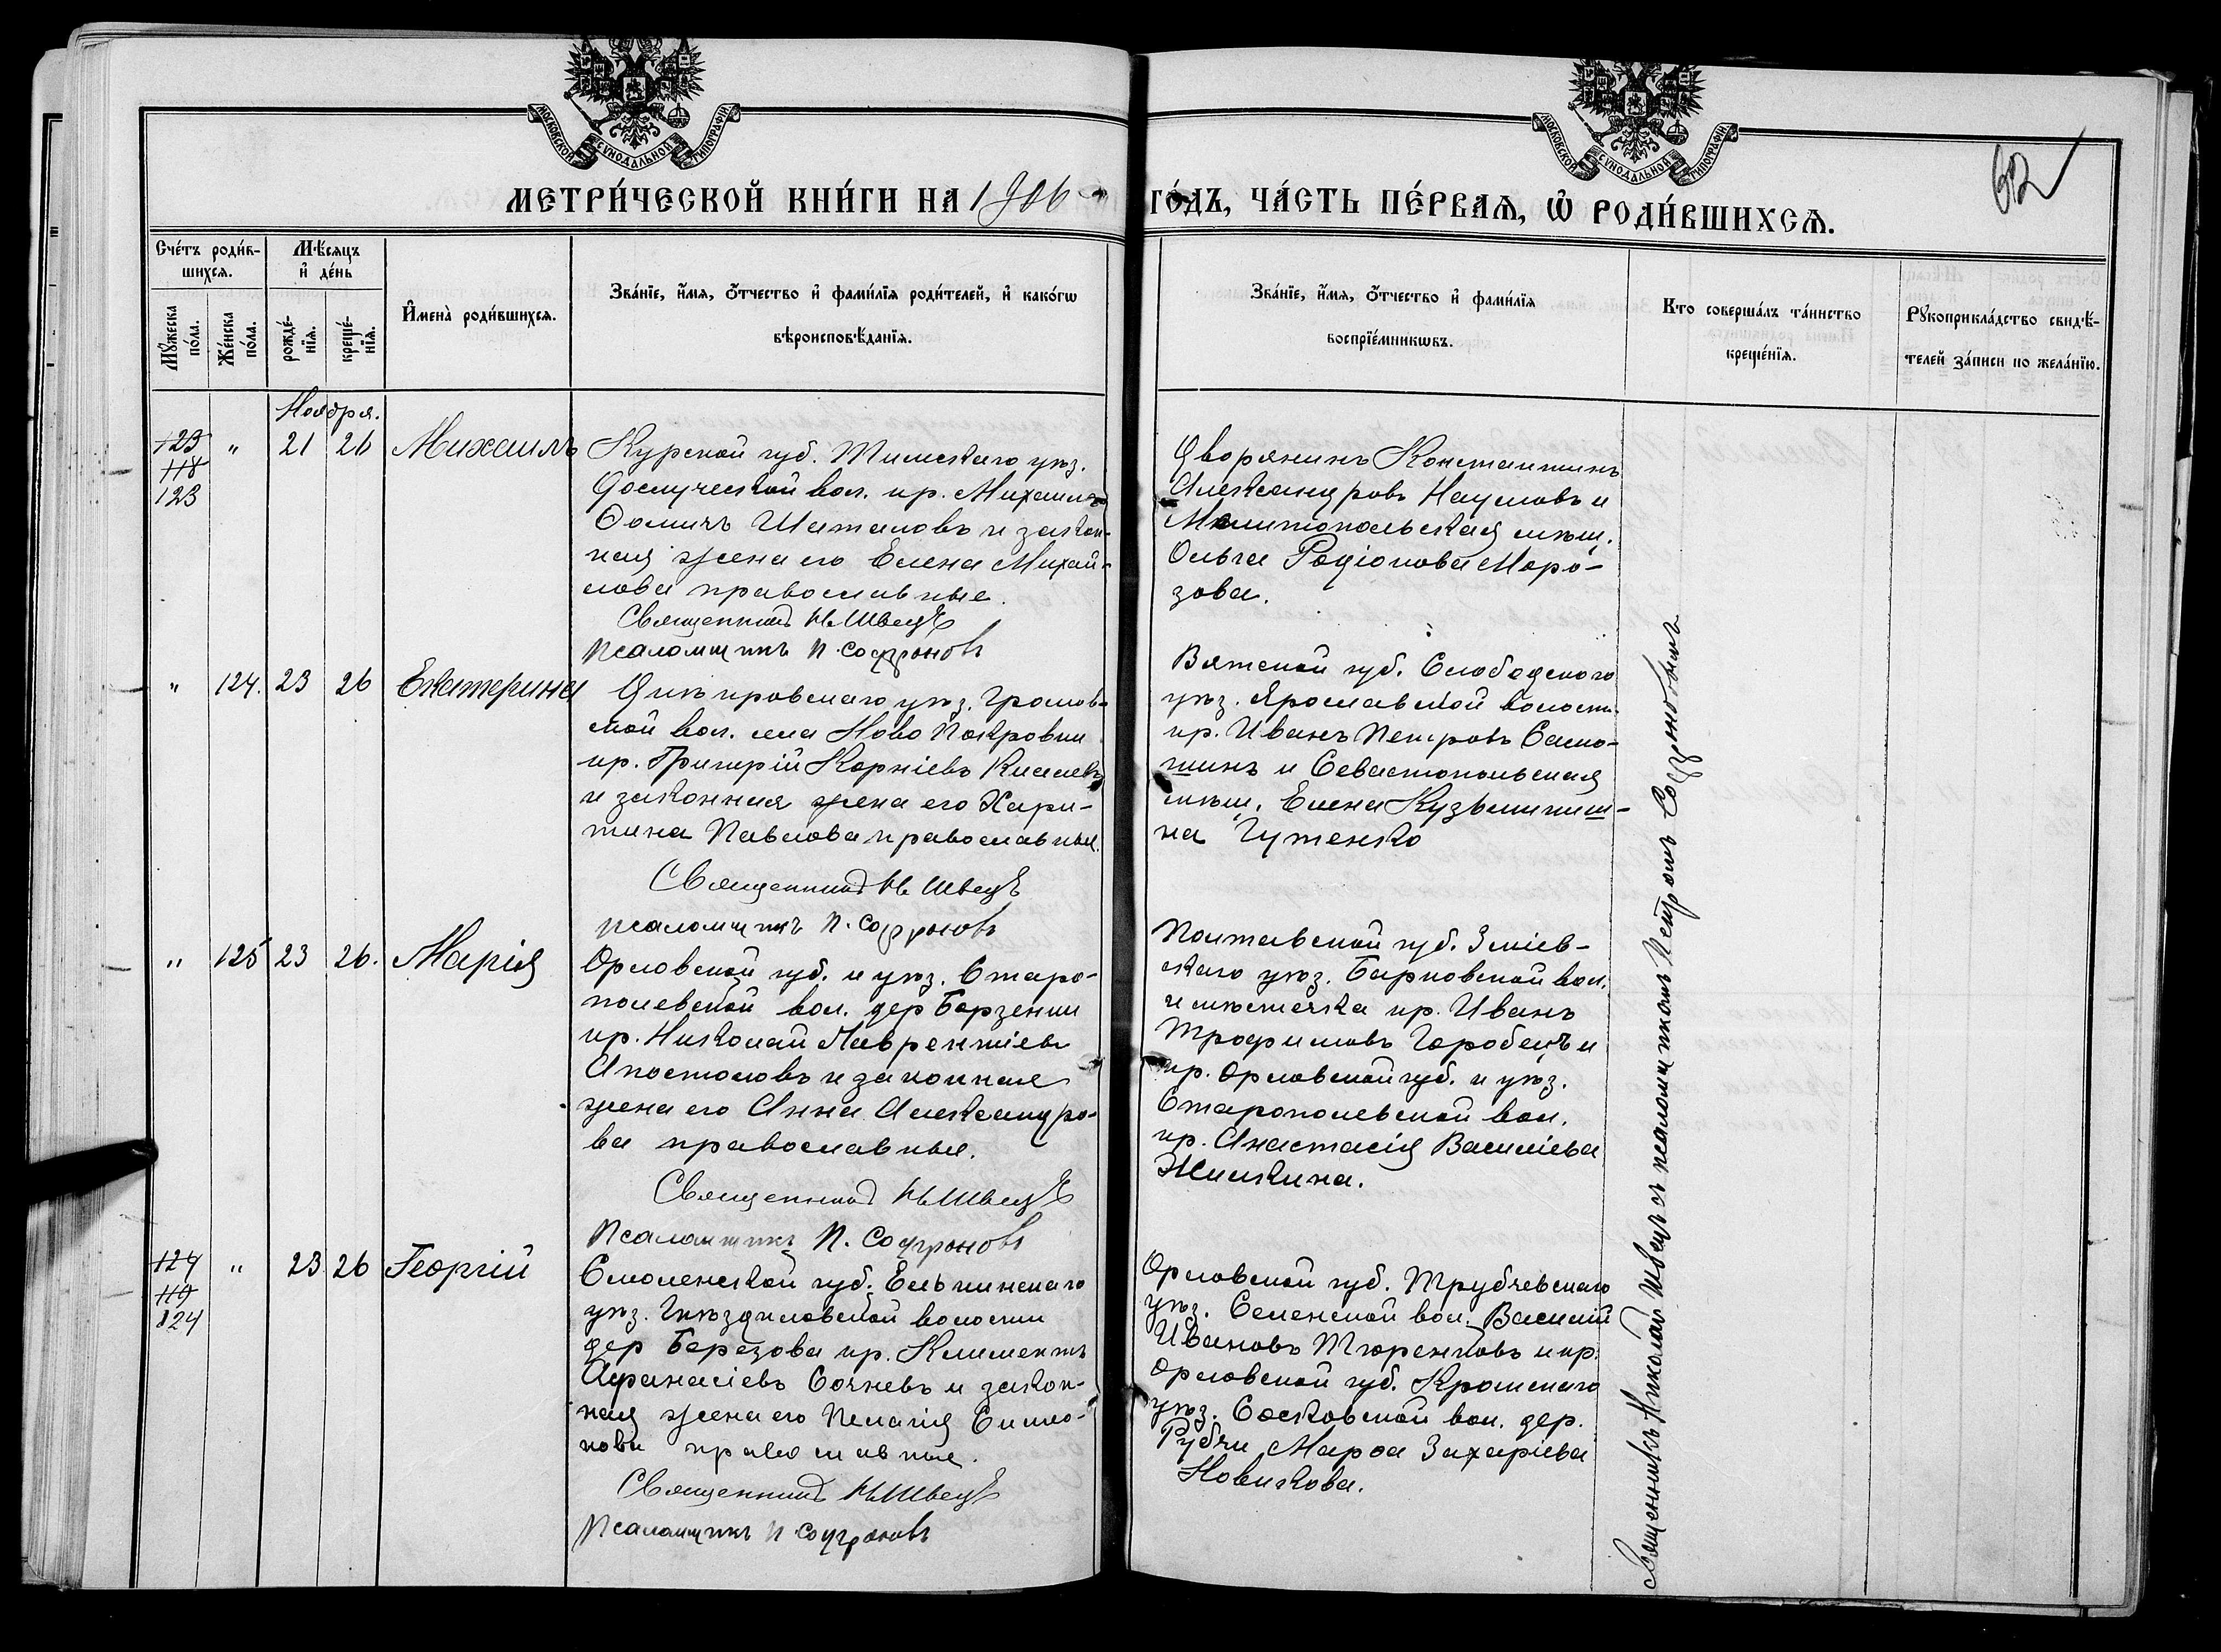 МОСКОВСКОЙ СѴНОДАЛЬНОЙ ТИПОГРАФІИ
МОСКОВСКОЙ СѴНОДАЛЬНОЙ ТИПОГРАФІИ
62
МЕТРИ́ЧЕСКОЙ КНИ́ГИ НА 1906 ГО́ДЪ, ЧА́СТЬ ПЕ́РВАѦ, Ѡ҆ РОДИ́ВШИХСѦ.
Сче́тъ роди́в-
шихсѧ.
Му́жеска
по́ла.
Же́нска
по́ла.
Мѣ́сяцъ
и҆ де́нь
рожде́-
нїя.
креще́-
нїя.
И҆мена̀ роди́вшихсѧ.
Зва́нїе, и҆́мя, ѻ҆́тчество и҆ фами́лїя роди́телей, и҆ како́гѡ
вѣроисповѣ́данїя.
Зва́нїе, и҆́мя, ѻ҆́тчество и҆ фами́лїя
воспрїе́мникѡвъ.
Кто соверша́лъ та́инство
креще́нїя.
Рꙋкоприкла́дство свидѣ́-
телей за́писи по жела́нїю.
Ноября.
123 " 21 26 Михаилъ
118
123
Курской губ. Тимскаго уѣз.
вол. кр. Михаилъ
Ѳомичъ Шаталовъ и закон-
ная жена его Елена Михай-
лова православные.
Священникъ Н. Швецъ
Псаломщикъ П. Софроновъ
Дворянинъ Константинъ
Александровъ Наумовъ и
Мелитопольская мѣщ.
Ольга Родіонова Моро-
зова.
" 124. 23 26 Екатерина
Днѣпровскаго уѣз. Громов-
ской вол. села Ново Покровки
кр. Григорій Корніевъ Киселевъ
и законная жена его Хари-
тина Павлова православные.
Священникъ Н. Швецъ
псаломщикъ П. Софроновъ
Вятской губ. Слободского
уѣз. Ярославской волости
кр. Иванъ Петровъ Само-
шинъ и Севастопольская
мѣщ. Елена Кузьминиш-
на Гутенко
" 125 23 26. Марія
Орловской губ. и уѣз. Старо-
полевской вол. дер
кр. Николай Лаврентіевъ
Апостоловъ и законная
жена его Анна Александро-
ва православные.
Священникъ Н. Швецъ
Псаломщикъ П. Софроновъ
Полтавской губ. Зміев-
скаго уѣз. вол.
и мѣстечка кр. Иванъ
Трофимовъ Горобецъ и
кр. Орловской губ. и уѣз.
Старопольевской вол.
кр. Анастасія Василіева
Жилкина.
124 " 23 26 Георгій
119
124
Смоленской губ. Ельнинскаго
уѣз. Гнѣздиловской волости
дер Березова кр. Климентъ
Афанасіевъ Сочневъ и закон-
ная жена его Пелагія Симео-
нова православные.
Священникъ Н. Швецъ
Псаломщикъ П Софроновъ
Орловской губ. Трубчевскаго
уѣз. Селенской вол. Василій
Ивановъ Тюренковъ и кр.
Орловской губ. Кромскаго
уѣз. Сосковской вол. дер.
Рубчи Марѳа Захаріева
Новикова.
Священникъ Николай Швецъ съ псаломщикомъ Петромъ Софроновымъ